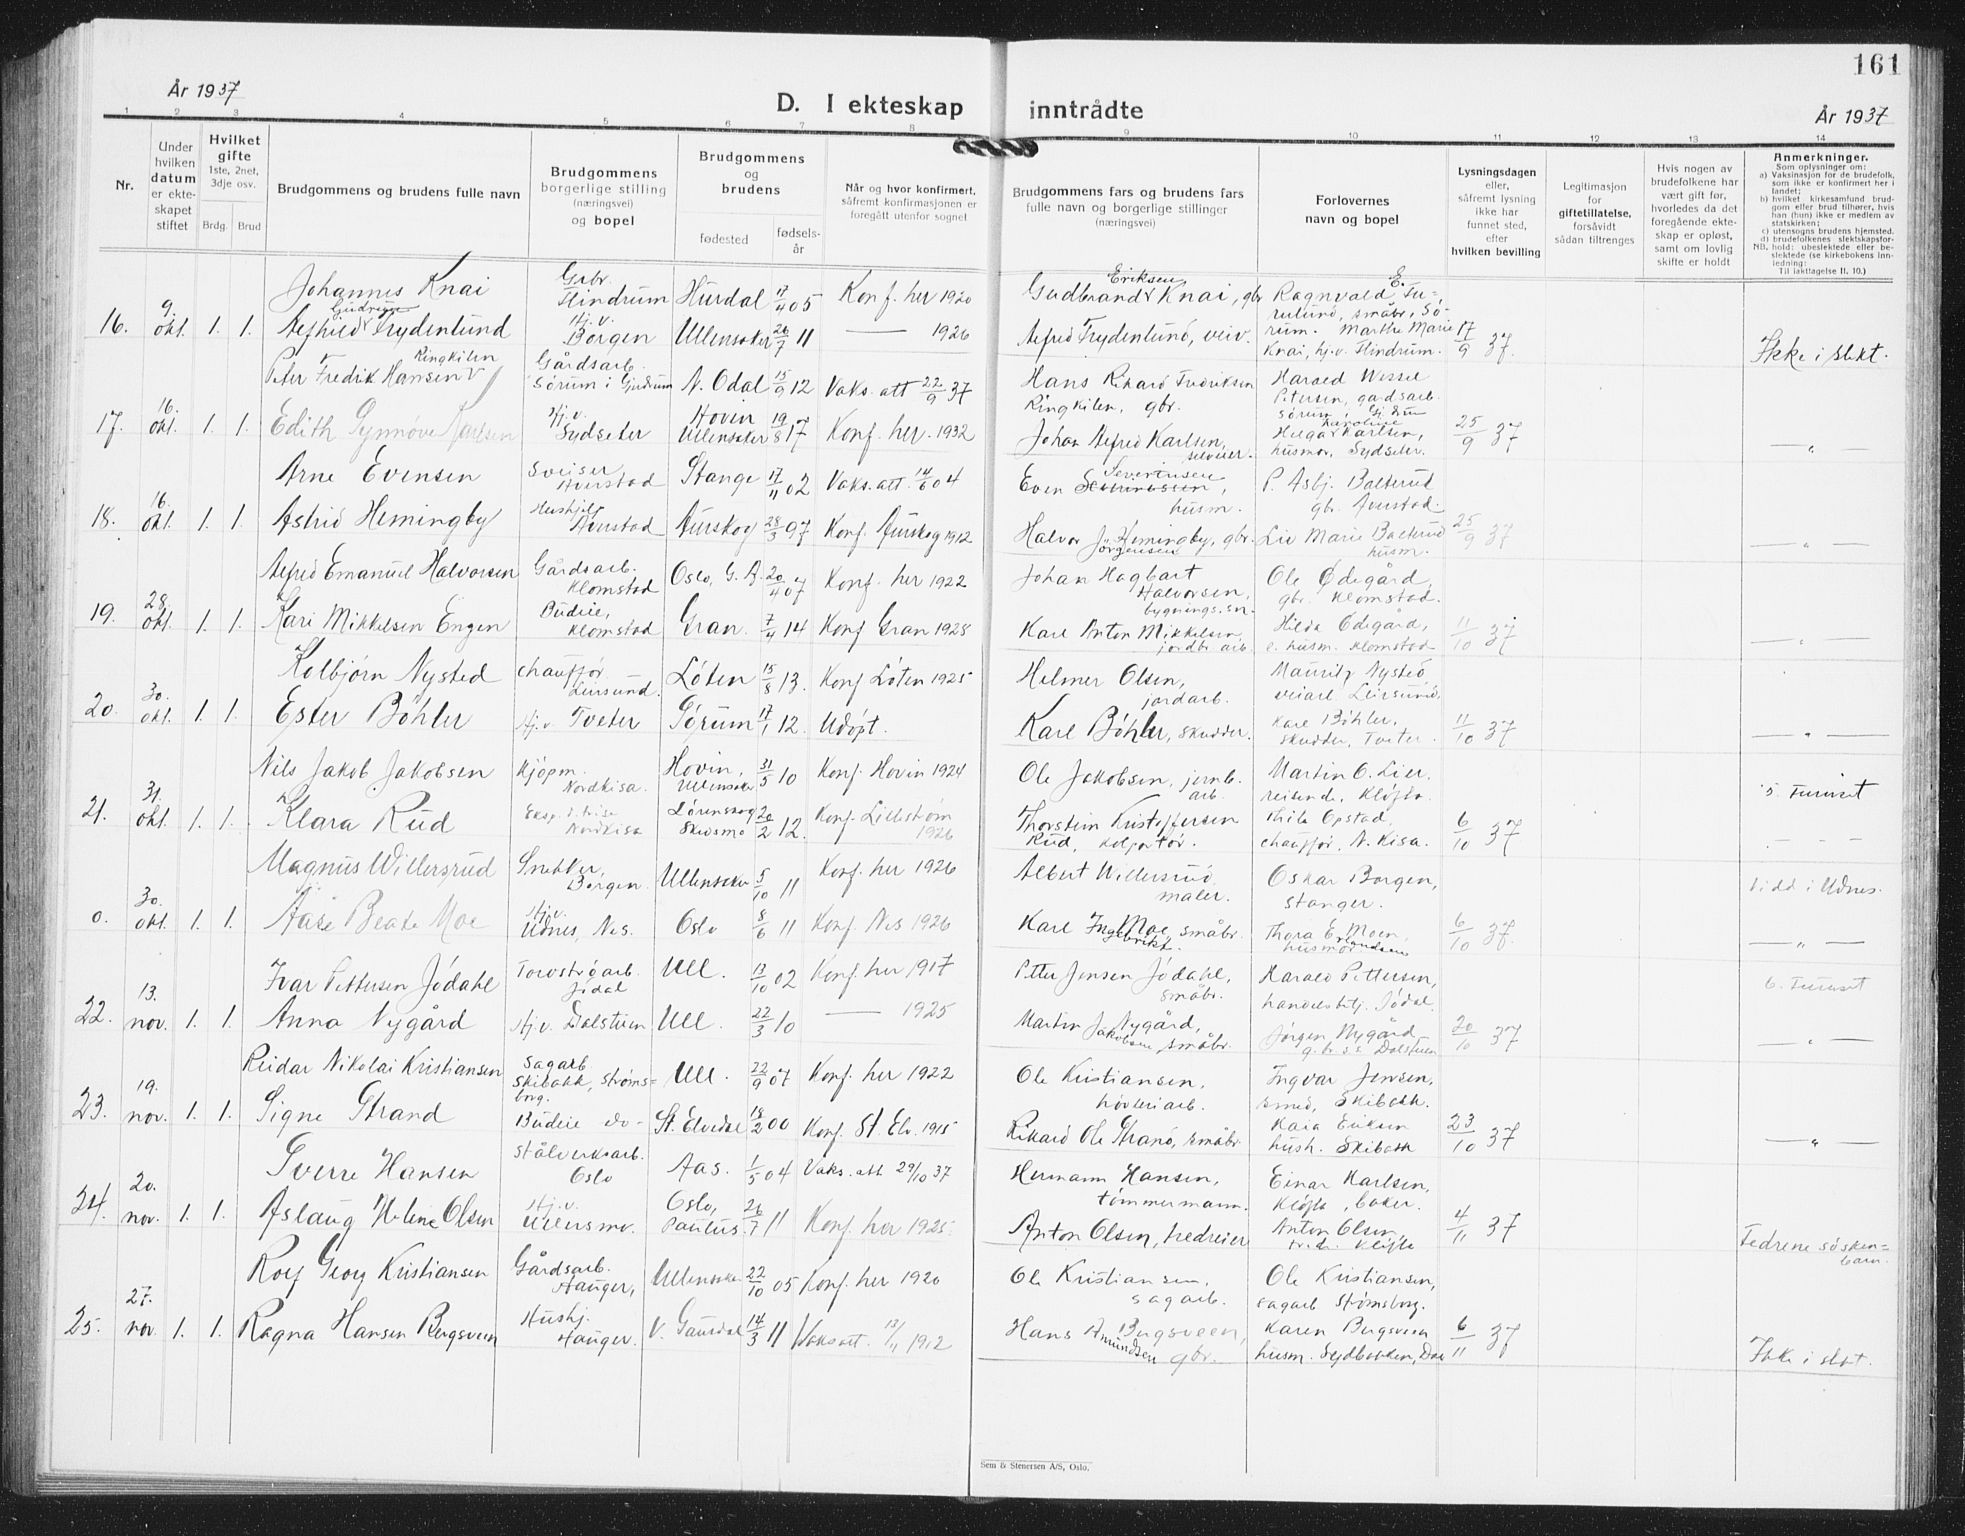 161
År 1937
D. I ekteskap inntrådte
År 1937
1 2 3 4 5 6 7 8 9 10 11 12 13 14
Nr.
Under hvilken datum er ekteskapet stiftet
Hvilket gifte 1ste, 2net, 3dje osv.
Brdg. Brud
Brudgommens og brudens fulle navn
Brudgommens borgerlige stilling (næringsvei) og bopel
Brudgommens og brudens
fødested
fødselsår
Når og hvor konfirmert, såfremt konfirmasjonen er foregått utenfor sognet
Brudgommens fars og brudens fars fulle navn og borgerlige stillinger (næringsvei)
Forlovernes navn og bopel
Lysningsdagen eller, såfremt lysning ikke har funnet sted, efter hvilken bevilling
Legitimasjon for giftetillatelse, forsåvidt sådan tiltrenges
Hvis nogen av brudefolkene har vært gift før, hvorledes da det foregående ekteskap er opløst, samt om lovlig skifte er holdt
Anmerkninger.
Som oplysninger om:
a) Vaksinasjon for de brudefolk, som ikke er konfirmert her i landet;
b) hvilket kirkesamfund brudgom eller brud tilhører, hvis han (hun) ikke er medlem av statskirken;
c) utensogns brudens hjemsted.
d) brudefolkenes slektskapsforhold: ubeslektede eller beslektede (se kirkebokens innledning:
NB. Til iakttagelse II. 10.)
Johannes Knai Grbr. Flindrum Hurdal 17/4 05 Konf. her 1920 Gudbrand Eriksen Knai, gbr Ragnvald E. Furulund, småbr. Sørum.
16. 9. okt. 1. 1. Alfhild Gudrun Frydenlund Hj.v. Borgen Ullensaker 26/7 11 — 1926 Alfred Frydenlund, veiv. Marthe Marie Knai, hj.v. Flindrum. 17/9 37. Ikke i slekt.
Peter Fredrik Hansen Ringkilen Gårdsarb. Sørum i Gjerdrum N. Odal 15/9 12 Vaks. att 22/9 37 Hans Rikard Fredriksen Ringkilen, gbr. Harald Wessel Petersen, gardsarb. Sørum, Gjerdrum
17. 16. okt. 1. 1. Edith Synnøve Karlsen Hj.v. Sydseter Hovin Ullensaker 19/8 17 Konf. her. 1932 Johan Alfred Karlsen, Helga Karoline Karlsen, husmor, Sydseter. 25/9 37 — „ —
Arne Evensen Sveiser Averstad Stange 17/11 02 Vaks. att. 14/6 04 Even Severinsen, husm. P. Asbj. Balterud gbr. Averstad.
18. 16. okt. 1. 1. Astrid Hemingby Hushjelp Averstad Aurskog 28/3 97 Konf. Aurskog 1912 Halvor Jørgensen Hemingby, gbr. Liv Marie Balterud husm. 25/9 37 — „ —
Alfred Emanuel Halvorsen Gårdsarb. Klomstad Oslo, G. A. 20/4 07 Konf. her 1922 Johan Hagbart Halvorsen, bygnings.sn. Ole Ødegård, gbr. Klomstad.
19. 28. okt. 1. 1. Kari Mikkelsen Engen Budeie, Klomstad Gran. 7/4 14 Konf Gran 1928 Karl Anton Mikkelsen, jordbr. arb. Hilda Ødegård, e. husm. Klomstad 11/10 37 — „ —
Kolbjørn Nysted Chauffør Leirsund. Løten 15/8 13. Konf Løten 1925 Helmer Olsen, jordarb. Mauritz Nysted, veiarb Leirsund.
20. 30. okt. 1. 1. Ester Bøhler Hj.v Tveter Sørum 17/1 12 Udøpt. Karl Bøhler, skredder. Karl Bøhler, skredder, Tveter. 11/10 37 — „ —
Nils Jakob Jakobsen Kjøpm. Nordkisa. Hovin, Ullensaker 31/5 10 Konf. Hovin 1924 Ole Jakobsen, jernb. arb. Martin O. Lier, reisende, Kløfta. 5. Furuset
21. 31. okt. 1. 1. Klara Rud Eksp.d.trise Nordkisa Lørenskog Skedsmo 20/2 12. Konf. Lillestrøm 1926 Thorstein Kristoffersen Rud, kolportør. Thile Opstad, chauffør, N. Kisa. 6/10 37 — — —
Magnus Willersrud Snekker, Borgen Ullensaker 5/10 11 Konf. her 1926 Albert Willersrud, maler. Oskar Borgen, stanger. Vidd i Udnes.
0. 30. okt. 1. 1. Aase Beate Moe Hj.v. Udnes, Nes. Oslo 8/6 11 Konf. Nes 1926 Karl Ingebrikt. Moe, småbr. Thora Erlandsen Moen, husmor 6/10 37. — „ —
Ivar Pettersen Jødahl Torvstrøarb. Jødal Ull. 13/10 02 Konf. her 1917 Petter Jensen Jødahl, småbr. Harald Pettersen, handelsbetj. Jødal. 6. Furuset
22. 13. nov. 1. 1. Anna Nygård Hj.v. Dalstuen Ull. 22/3 10 — 1925 Martin Jakobsen Nygård, småbr. Jørgen Nygård g.br.s.s. Dalstuen 20/10 37 — „ —
Reidar Nikolai Kristiansen Sagarb. Skibakk, Strømsborg. Ull. 22/9 07 Konf. her 1922 Ole Kristiansen, høvleriarb. Ingvar Jensen, smed, Skibakk.
23. 19. nov. 1. 1. Signe Strand Budeie do- St. Elvedal 18/2 00 Konf. St. Elv. 1915 Rikard Ole Strand, småbr. Kaia Eriksen hush. Skibakk 23/10 37 — „ —
Sverre Hansen Stålverksarb. Oslo Aas. 1/5 04 Vaks. att 29/10 37 Hermann Hansen, tømmermann. Einar Karlsen, Kløfta, baker.
24. 20. nov. 1. 1. Aslaug Helene Olsen Hj.v. Ullersmo. Oslo, Paulus. 26/7 11 Konf. her 1925. Anton Olsen, hredreier Anton Olsen Kløfta 4/11 37 Fedrene søskenbarn.
Rolf Georg Kristiansen Gårdsarb. Hauger, Ullensaker 22/10 05 Konf. her 1920 Ole Kristiansen, sagarb. Ole Kristiansen, sagarb Strømsborg.
25. 27. nov. 1. 1. Ragna Hansen Bergsveen Hushj. Hauger. V. Gausdal 14/3 11 Vaks att. 13/11 1912 Hans Amundsen Bergsveen, gbr. Karen Bergsveen husm. Sydbakken, Dal 6/11 37 Ikke i slekt.
Sem & Stenersen A/S, Oslo.